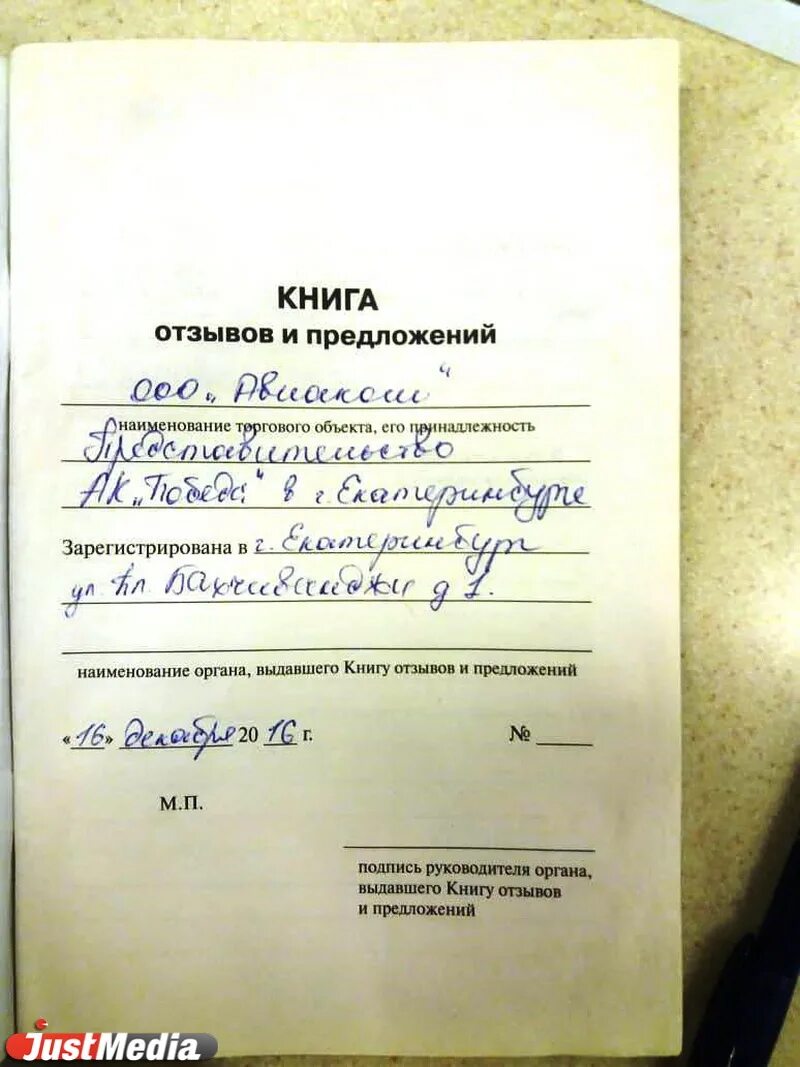 КНИГА
отзывов и предложений
ООО „Авиаком"
наименование торгового объекта, его принадлежность
Представительство
АК „Победа" в г. Екатеринбурге
Зарегистрирована в г. Екатеринбург
ул. Пл. Бахчиванджи д 1.
наименование органа, выдавшего Книгу отзывов и предложений
«16» декабря 2016 г. №
М.П.
подпись руководителя органа,
выдавшего Книгу отзывов
и предложений
JustMedia